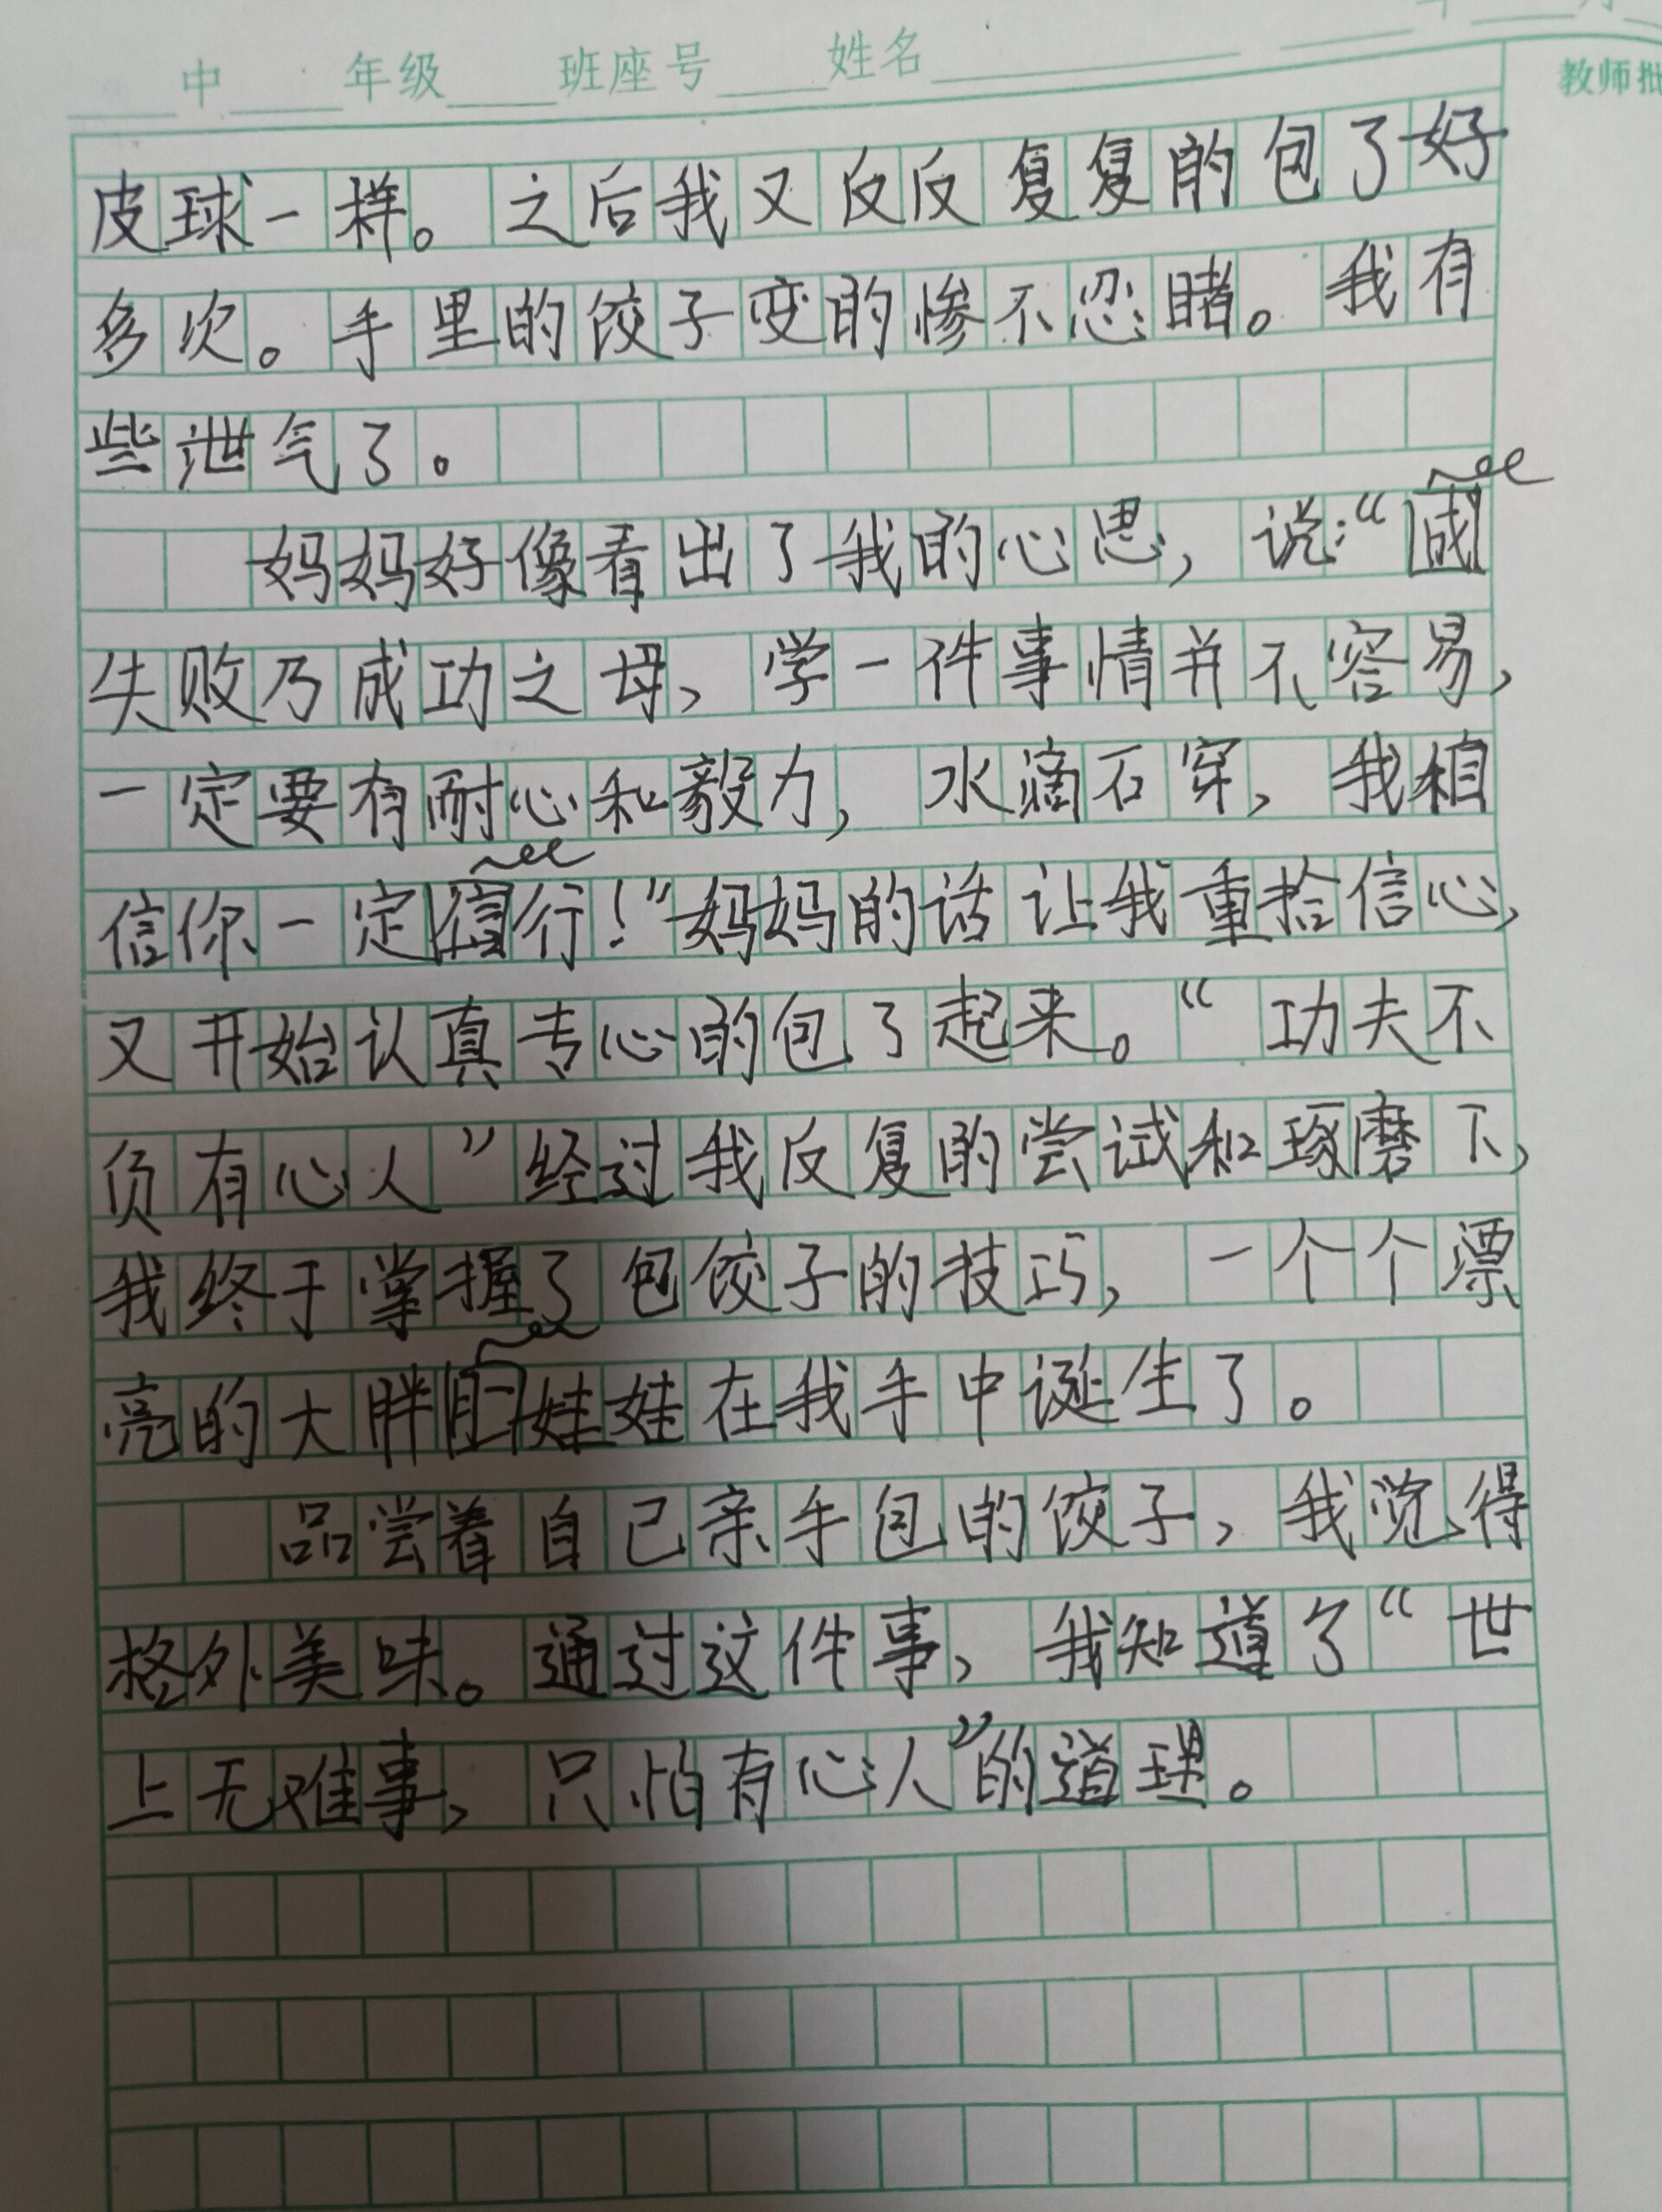 中 年级 班座号 姓名
教师批
皮球一样。之后我又反反复复的包了好
多次。手里的饺子变的惨不忍睹。我有
些泄气了。
妈妈好像看出了我的心思，说：“
失败乃成功之母，学一件事情并不容易，
一定要有耐心和毅力，水滴石穿，我相
信你一定行！”妈妈的话让我重拾信心，
又开始认真专心的包了起来。“功夫不
负有心人”经过我反复的尝试和琢磨下，
我终于掌握了包饺子的技巧，一个个漂
亮的大胖娃娃在我手中诞生了。
品尝着自己亲手包的饺子，我觉得
格外美味。通过这件事，我知道了“世
上无难事，只怕有心人”的道理。